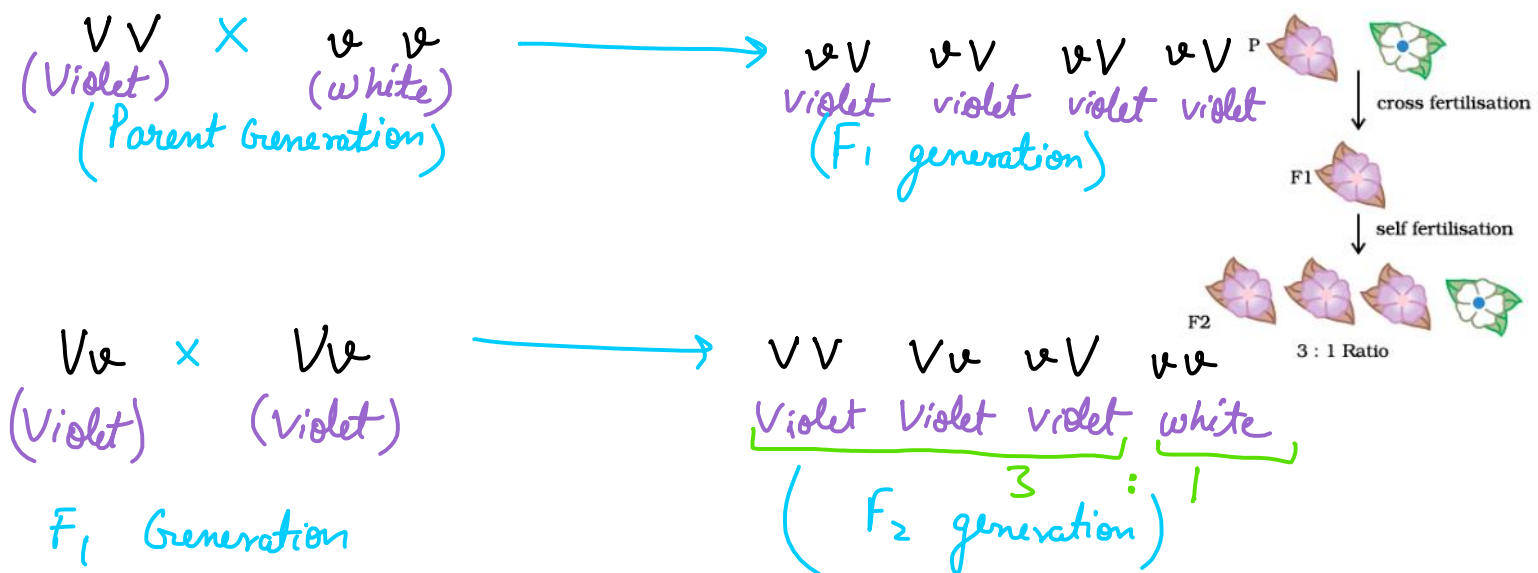 V V X v v
(Violet) (white)
(Parent Generation)
vV vV vV vV
violet violet violet violet
(F1 generation)
P
cross fertilisation
F1
self fertilisation
F2
3 : 1 Ratio
Vv x Vv
(Violet) (Violet)
F1 Generation
VV Vv vV vv
Violet Violet violet white
3 : 1
(F2 generation)